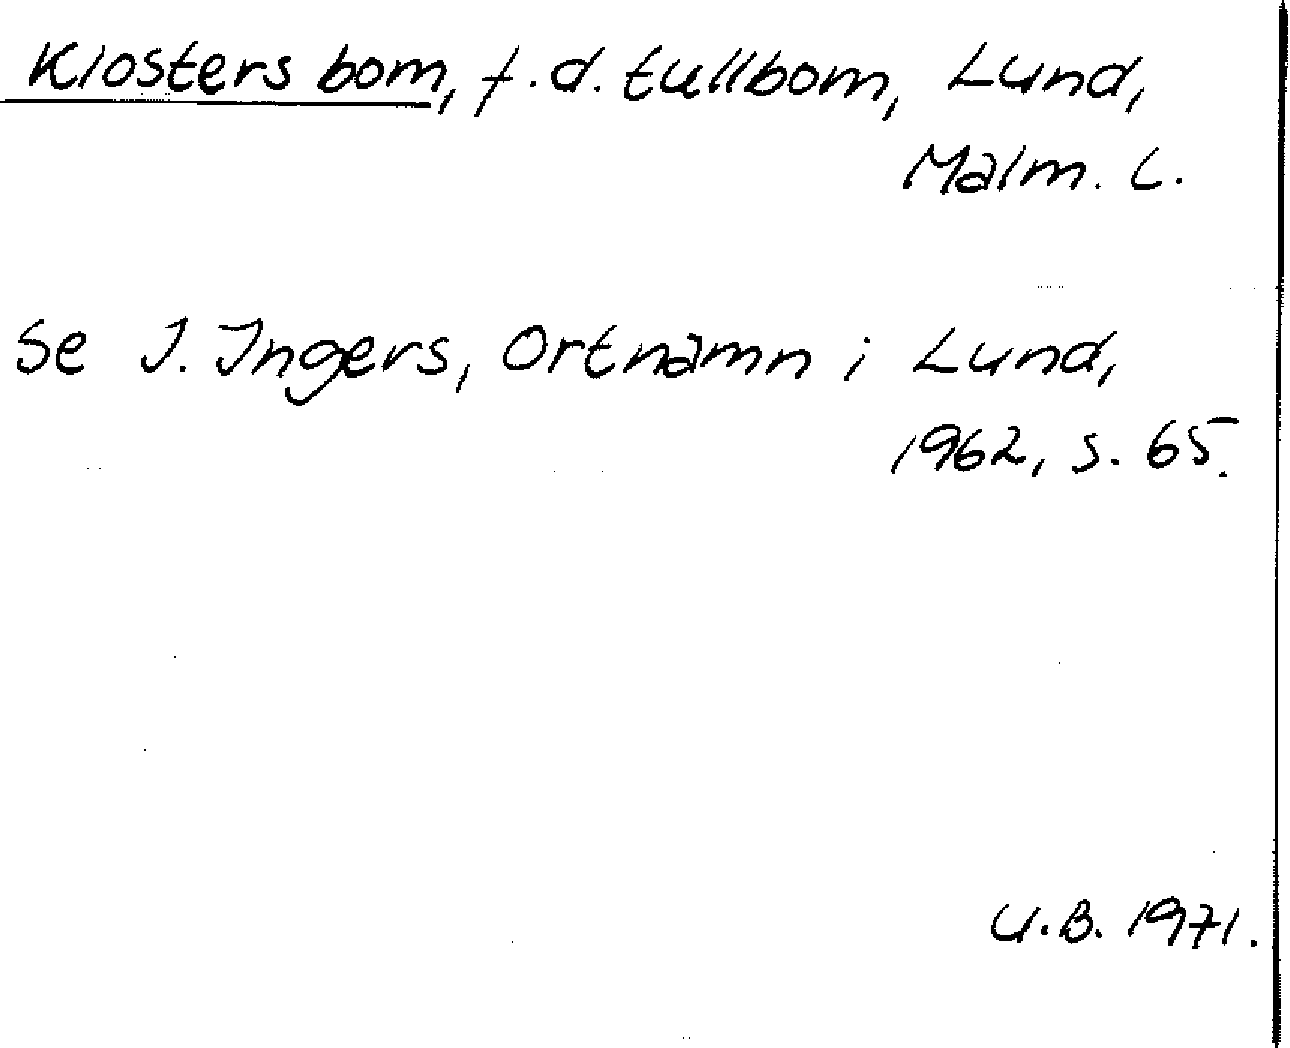 Klosters bom, f.d. tullbom, Lund,
Malm. L.
Se J. Ingers, Ortnamn i Lund,
1962, s. 65.
U.B. 1971.